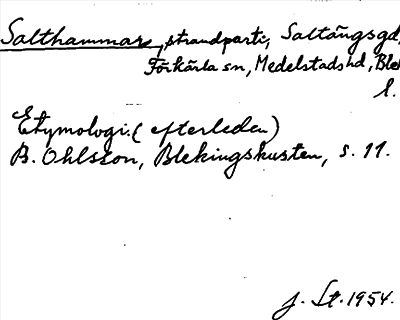 Salthammare, strandparti, Saltängsgd,
Förkärla sn, Medelstads hd, Blek
l.
Etymologi. (efterleden)
B. Ohlsson, Blekingskusten, s. 11.
J. St. 1954.